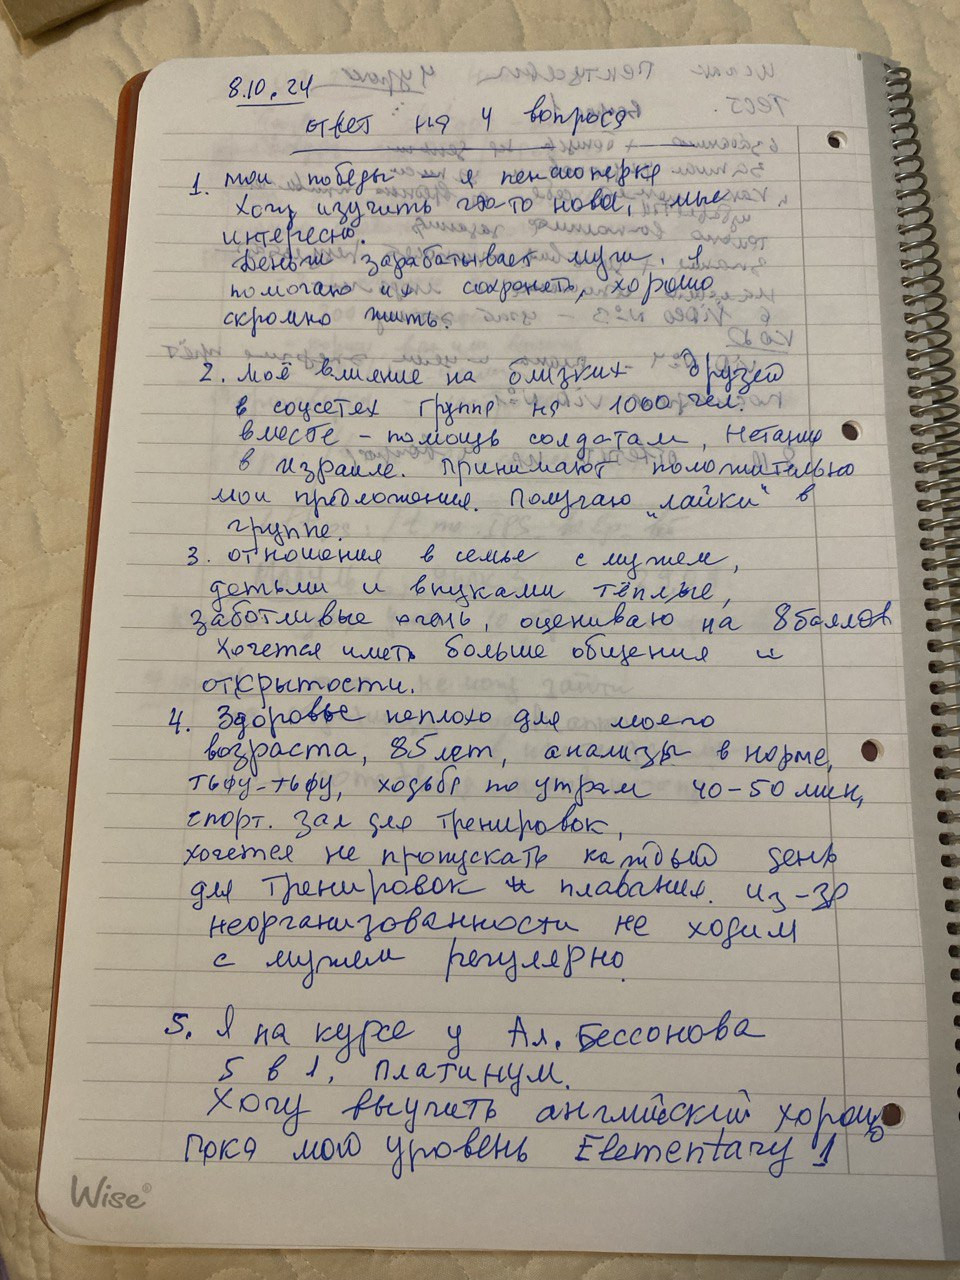 8.10.24
ответ на 4 вопроса
1. мои победы я пенсионерка
Хочу изучить что-то новое, мне
интересно.
Деньги зарабатывает муж. я
помогаю их сохранять, хорошо
скромно жить.
2. Моё влияние на близких друзей
в соцсетях группа на 1000 чел.
вместе – помощь солдатам, Нетании
в Израиле. Принимают положительно
мои предложения. Получаю „лайки" в
группе.
3. отношения в семье с мужем,
детьми и внуками тёплые,
заботливые очень, оцениваю на 8 баллов
Хочется иметь больше общения и
открытости.
4. Здоровье неплохо для моего
возраста, 85 лет, анализы в норме,
тьфу-тьфу, ходьба по утрам 40-50 мин,
спорт. зал для тренировок,
хочется не пропускать каждый день
для тренировок и плавания. Из-за
неорганизованности не ходим
с мужем регулярно.
5. Я на курсе у Ал. Бессонова
5 в 1, платинум.
Хочу выучить английский хорошо
Пока мой уровень Elementary 1
Wise®